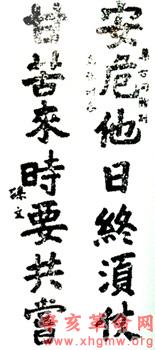 安危他日終須仗
甘苦來時要共嘗
孫文
辛亥革命网
www.xhgmw.org